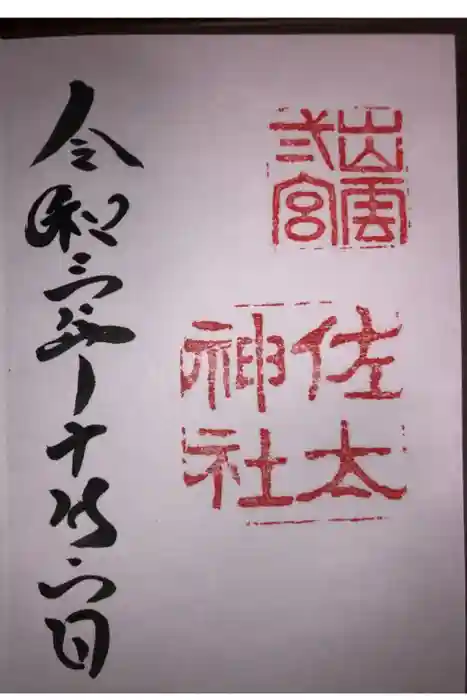 出雲
弐宮
佐太
神社
令和三年十一月六日